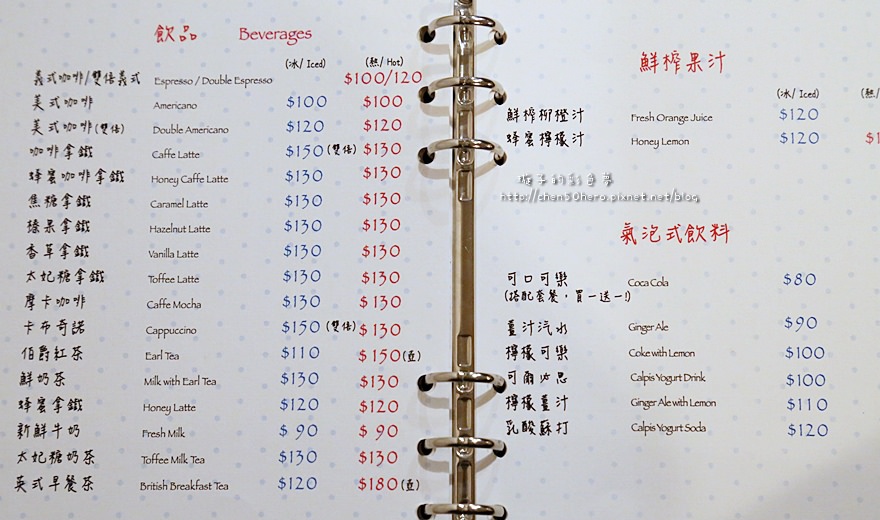 飲品 Beverages
(冰/ Iced) (熱/ Hot)
義式咖啡/雙倍義式 Espresso / Double Espresso $100/120
美式咖啡 Americano $100 $100
美式咖啡(雙倍) Double Americano $120 $120
咖啡拿鐵 Caffe Latte $150(雙倍) $130
蜂蜜咖啡拿鐵 Honey Caffe Latte $130 $130
焦糖拿鐵 Caramel Latte $130 $130
榛果拿鐵 Hazelnut Latte $130 $130
香草拿鐵 Vanilla Latte $130 $130
太妃糖拿鐵 Toffee Latte $130 $130
摩卡咖啡 Caffe Mocha $130 $130
卡布奇諾 Cappuccino $150(雙倍) $130
伯爵紅茶 Earl Tea $110 $150(壺)
鮮奶茶 Milk with Earl Tea $130 $130
蜂蜜拿鐵 Honey Latte $120 $120
新鮮牛奶 Fresh Milk $ 90 $ 90
太妃糖奶茶 Toffee Milk Tea $130 $130
英式早餐茶 British Breakfast Tea $120 $180(壺)
鮮榨果汁
(冰/ Iced) (熱/
鮮榨柳橙汁 Fresh Orange Juice $120
蜂蜜檸檬汁 Honey Lemon $120 $1
猴子的彩色夢
http://chen50hero.pixnet.net/blog
氣泡式飲料
可口可樂 Coca Cola $80
(搭配套餐，買一送一!)
薑汁汽水 Ginger Ale $90
檸檬可樂 Coke with Lemon $100
可爾必思 Calpis Yogurt Drink $100
檸檬薑汁 Ginger Ale with Lemon $110
乳酸蘇打 Calpis Yogurt Soda $120